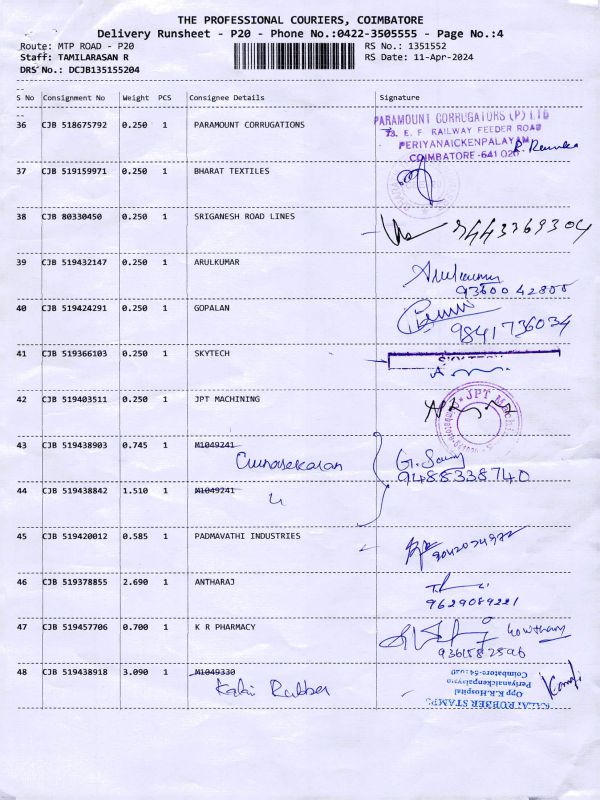 THE PROFESSIONAL COURIERS, COIMBATORE
Delivery Runsheet - P20 - Phone No.:0422-3505555 - Page No.:4
Route: MTP ROAD - P20 RS No.: 1351552
Staff: TAMILARASAN R RS Date: 11-Apr-2024
DRS No.: DCJB135155204
S No Consignment No Weight PCS Consignee Details Signature
36 CJB 518675792 0.250 1 PARAMOUNT CORRUGATIONS
PARAMOUNT CORRUGATORS (P) LTD
73, E. F. RAILWAY FEEDER ROAD
PERIYANAICKENPALAYAM
COIMBATORE - 641 020
37 CJB 519159971 0.250 1 BHARAT TEXTILES
38 CJB 80330450 0.250 1 SRIGANESH ROAD LINES 9443769304
39 CJB 519432147 0.250 1 ARULKUMAR Arulkumar
9360042800
40 CJB 519424291 0.250 1 GOPALAN
9841736034
41 CJB 519366103 0.250 1 SKYTECH
42 CJB 519403511 0.250 1 JPT MACHINING JPT
43 CJB 519438903 0.745 1 M1049241
Gunasekaran G.
9488338740
44 CJB 519438842 1.510 1 M1049241
45 CJB 519420012 0.585 1 PADMAVATHI INDUSTRIES
46 CJB 519378855 2.690 1 ANTHARAJ
9629089221
47 CJB 519457706 0.700 1 K R PHARMACY Gowtham
9361582596
48 CJB 519438918 3.090 1 M1049330
Kalai Rubber
KALAI RUBBER STAMPS
Opp K.R.Hospital
Periyanaickenpalayam
Coimbatore-641020